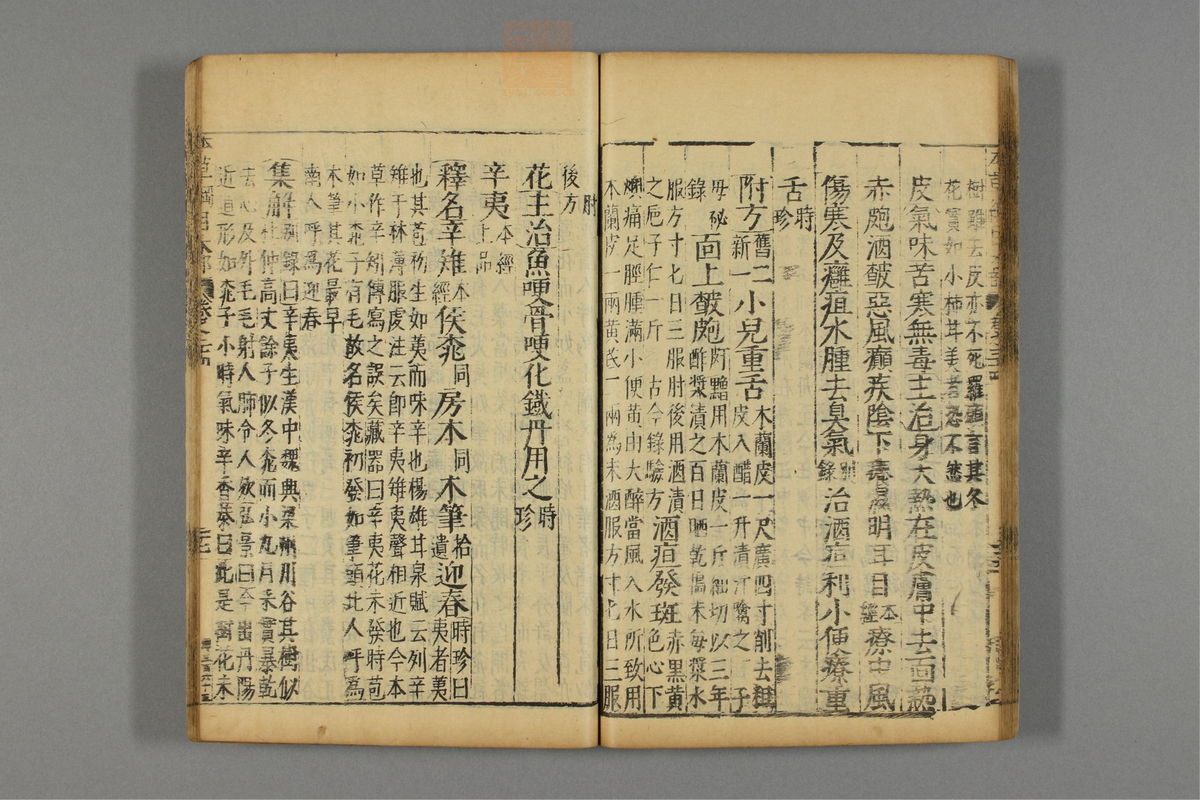 樹雖去皮亦不死羅願言其冬
花實如小柿甘美者恐不然也
皮氣味苦寒無毒主治身大熱在皮膚中去面熱
赤皰酒皶惡風癲疾陰下癢濕明耳目本經療中風
傷寒及癰疽水腫去臭氣別錄治酒疸利小便療重
舌時珍
附方舊二新一小兒重舌木蘭皮一丈尺廣四寸削去粗
皮入醋一升漬汁噙之子
母秘錄面上皶皰䵟黯用木蘭皮一斤細切以三年
酢漿漬之百日晒乾搗末每漿水
服方寸匕日三服肘後用酒漬
之巵子仁一斤古今錄驗方酒疸發斑赤黑黃色心下
燠痛足脛腫滿小便黃由大醉當風入水所致用
木蘭皮一兩黃芪二兩為末酒服方寸匕日三服
肘後方
花主治魚哽骨哽化鐵丹用之時珍
辛夷本經上品
釋名辛雉本經侯桃同房木同木筆拾遺迎春時珍曰
夷者荑
也其苞初生如荑而味辛也楊雄甘泉賦云列辛
雉于林薄服虔注云即辛夷雉夷聲相近也今本
草作辛矧傳寫之誤矣藏器曰辛夷花未發時苞
如小桃子有毛故名侯桃初發如筆頭北人呼為
木筆其花最早
南人呼為迎春
集解別錄曰辛夷生漢中魏興梁州川谷其樹似
杜仲高丈餘子似冬桃而小九月采實暴乾
去心及外毛毛射人肺令人欬弘景曰今出丹陽
近道形如桃子小時氣味辛香恭曰此是樹花未